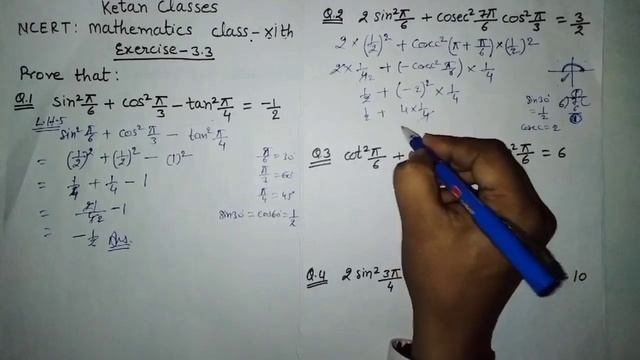 Ketan Classes
NCERT: mathematics class-xith
Exercise-3.3
Prove that:
Q.1 sin²π/6 + cos²π/3 - tan²π/4 = -1/2
L.H.S
sin²π/6 + cos²π/3 - tan²π/4
= (1/2)² + (1/2)² - (1)²
= 1/4 + 1/4 - 1
= -1
= -1/2 Ans.
π/6 = 30
π/3 = 60
π/4 = 45°
sin30° = cos60° = 1/2
Q.2 2 sin²π/6 + cosec²7π/6 cos²π/3 = 3/2
2 × (1/2)² + cosec²(π + π/6) × (1/2)²
2 × 1/4 + (-cosec²π/6) × 1/4
1/2 + (-2)² × 1/4
1/2 + 4 × 1/4
sin30°
= 1/2
cosec = 2
Q.3 cot²π/6 + ²π/6 = 6
Q.4 2 sin²3π/4 10